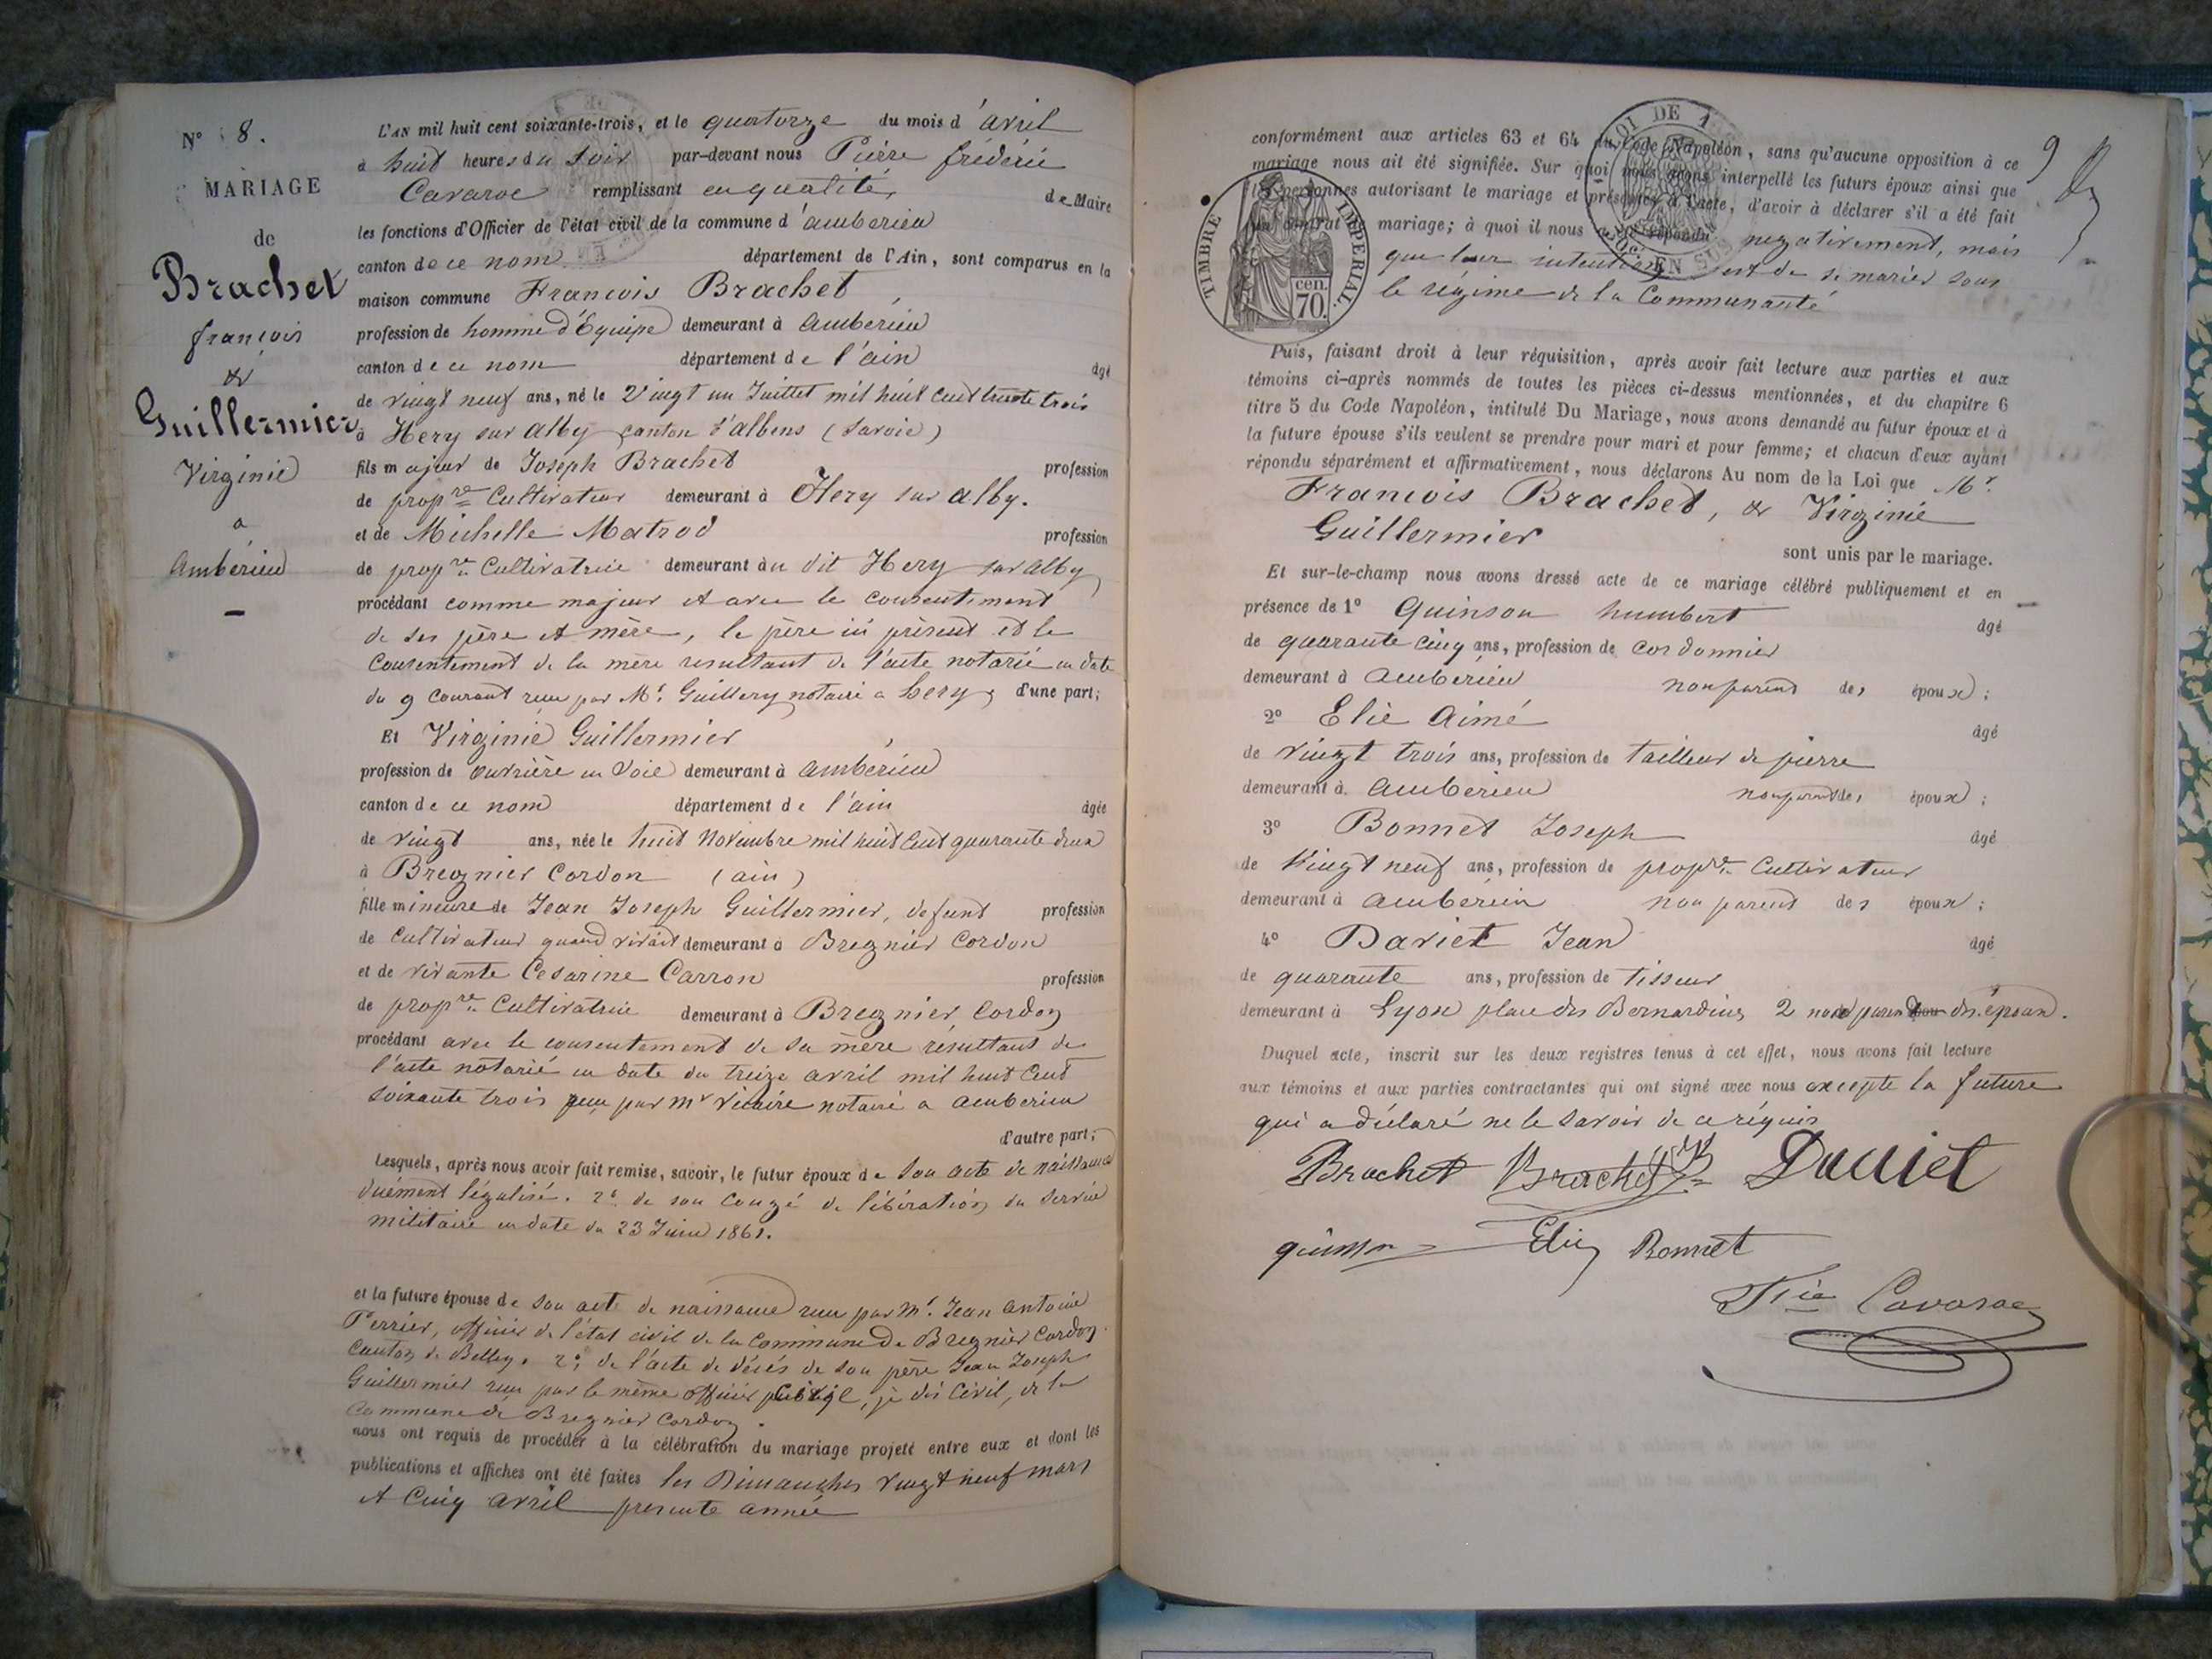 N° 8.
MARIAGE
de
Brachet
françois
&
Guillermier
Virginie
a
Ambérieu
L'AN mil huit cent soixante-trois, et le quatorze du mois d'avril
à huit heures du soir par-devant nous Pierre frédéric
Cavaroc remplissant en qualité de Maire
les fonctions d'Officier de l'état civil de la commune d'ambérieu
canton de ce nom département de l'Ain, sont comparus en la
maison commune François Brachet
profession de homme d'Equipe demeurant à ambérieu
canton de ce nom département de l'ain âgé
de vingt neuf ans, né le vingt un Juillet mil huit cent trente trois
à Hery sur alby canton d'albens (Savoie)
fils majeur de Joseph Brachet profession
de propre Cultivateur demeurant à Hery sur alby.
et de Michelle Matrod profession
de propre Cultivatrice demeurant au dit Hery sur alby
procédant comme majeur et avec le consentiment
de ses père et mère, le père ici présent et le
consentement de la mère resultant de l'acte notarié en date
du 9 courant reçu par Mr. Guillery notaire a hery, d'une part;
Et Virginie Guillermier
profession de ouvrière en Soie demeurant à ambérieu
canton de ce nom département de l'ain âgée
de vingt ans, née le huit novembre mil huit cent quarante deux
à Bregnier Cordon (ain)
fille mineure de Jean Joseph Guillermier, defunt profession
de Cultivateur quand vivait demeurant à Bregnier Cordon
et de vivante Césarine Carron profession
de propre Cultivatrice demeurant à Bregnier Cordon
procédant avec le consentement de sa mère résultant de
l'acte notarié en date du treize avril mil huit cent
soixante trois reçu par mr vicaire notaire a ambérieu
d'autre part;
Lesquels, après nous avoir fait remise, savoir, le futur époux de son acte de naissance
duément légalisé. 2° de son congé de libération du service
militaire en date du 23 Juin 1861.
et la future épouse de son acte de naissance reçu par Mr. Jean antoine
Perrier, officier de l'état civil de la commune de Bregnier Cordon
canton de Belley. 2° de l'acte de décés de son père Jean Joseph
Guillermier reçu par le même officier je dis civil, de la
commune de Bregnier Cordon.
nous ont requis de procéder à la célébration du mariage projeté entre eux et dont les
publications et affiches ont été faites les Dimanches vingt neuf mars
et Cinq avril presente année
9
conformément aux articles 63 et 64 du Code Napoléon, sans qu'aucune opposition à ce
mariage nous ait été signifiée. Sur quoi nous avons interpellé les futurs époux ainsi que
les personnes autorisant le mariage et présentes à l'acte, d'avoir à déclarer s'il a été fait
un contrat de mariage; à quoi il nous a été répondu negativement, mais
que leur intention est de se marier sous
le régime de la Communauté
TIMBRE IMPÉRIAL.
cen.
70.
Puis, faisant droit à leur réquisition, après avoir fait lecture aux parties et aux
témoins ci-après nommés de toutes les pièces ci-dessus mentionnées, et du chapitre 6
titre 5 du Code Napoléon, intitulé Du Mariage, nous avons demandé au futur époux et à
la future épouse s'ils veulent se prendre pour mari et pour femme; et chacun d'eux ayant
répondu séparément et affirmativement, nous déclarons Au nom de la Loi que Mr.
François Brachet, & Virginie
Guillermier
sont unis par le mariage.
Et sur-le-champ nous avons dressé acte de ce mariage célébré publiquement et en
présence de 1° Quinson humbert âgé
de quarante cinq ans, profession de cordonnier
demeurant à ambérieu non parent des époux;
2° Elie Aimé âgé
de vingt trois ans, profession de tailleur de pierre
demeurant à ambérieu non parent des époux;
3° Bonnet Joseph âgé
de vingt neuf ans, profession de propre Cultivateur
demeurant à ambérieu non parent des époux;
4° Daviet Jean âgé
de quarante ans, profession de tisseur
demeurant à Lyon place des Bernardines 2 non parent des époux.
Duquel acte, inscrit sur les deux registres tenus à cet effet, nous avons fait lecture
aux témoins et aux parties contractantes qui ont signé avec nous excepte la future
qui a déclaré ne le savoir de ce réquis
Brachet Brachet Daviet
quinson Elie Bonnet
Fric Cavaroc